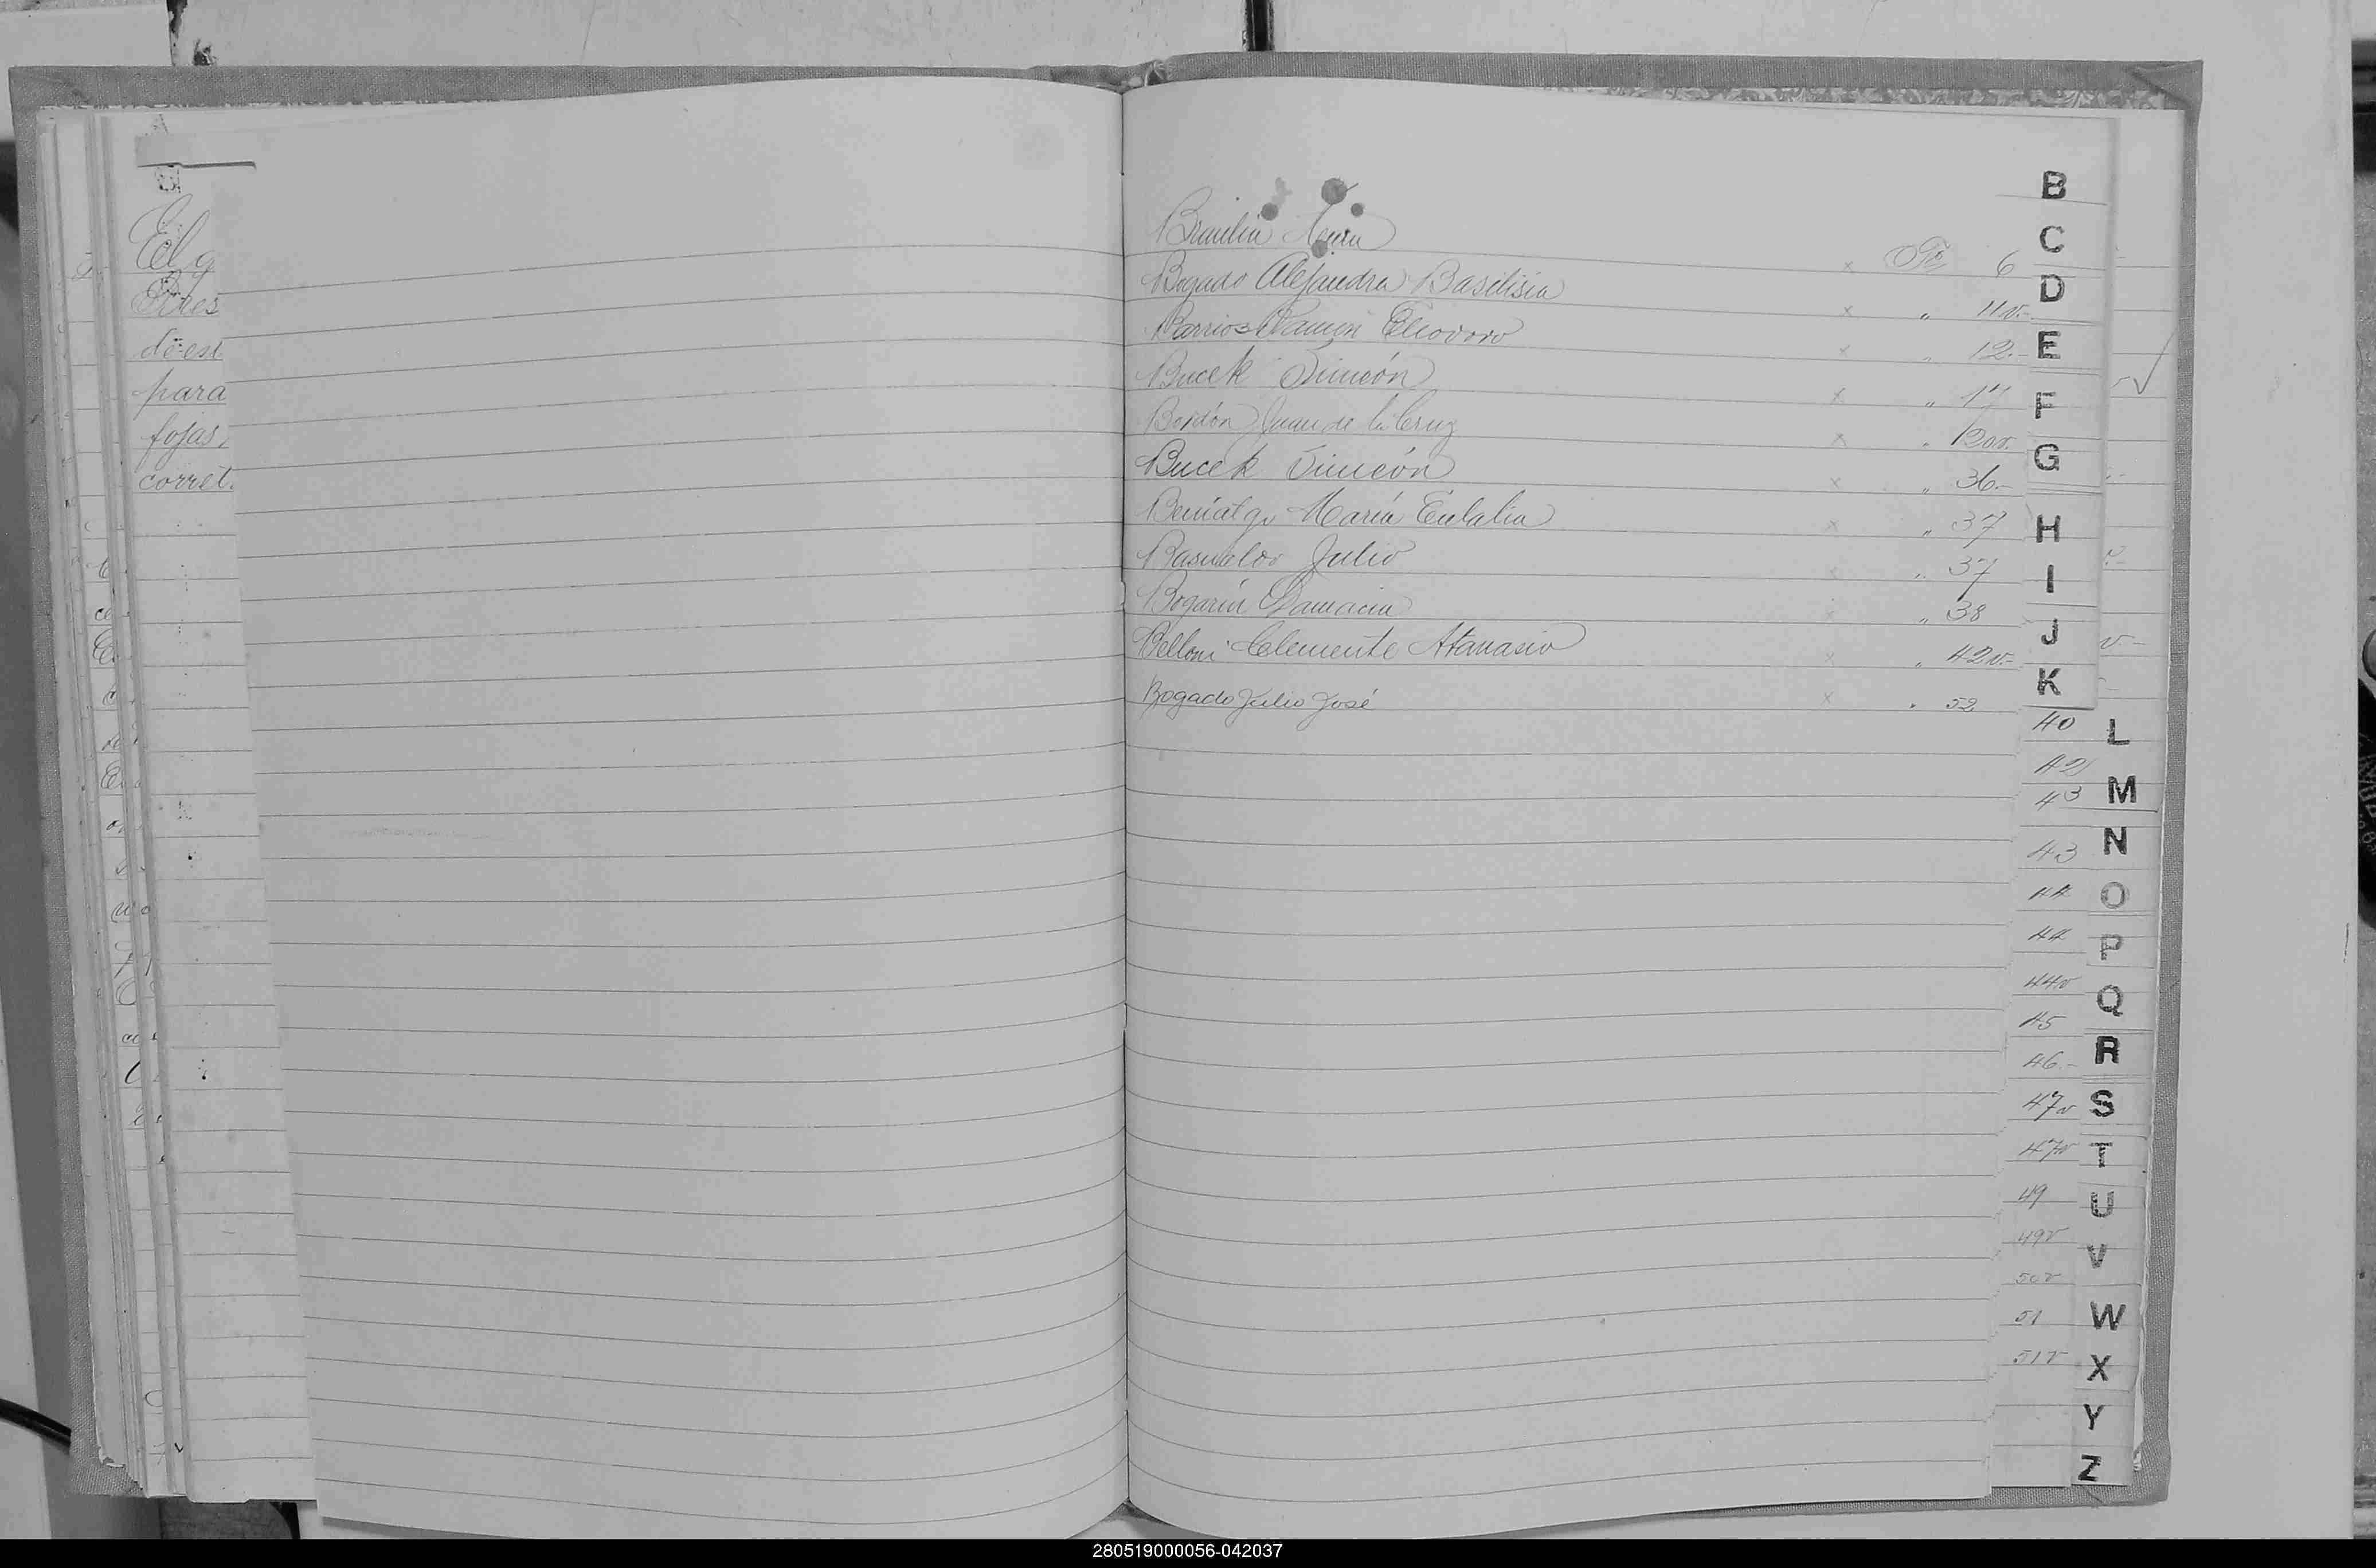 A
El q
de est
para
fojas,
corret.
B
C
D
E
F
G
H
I
J
K
L
M
N
O
P
Q
R
S
T
U
V
W
X
Y
Z
Braulia Fo 6
Bogado Alejandra Basilisia x " 11v.-
Barrios Ramón Eliodoro x " 12.-
Bucek Simeón x " 17
Bordón Juan de la Cruz x "
Bucek Simeón x " 36.-
María Eulalia x " 37
Basualdo Julio x " 37
Bogarín Damacia x " 38
Belloni Clemente Atanasio x " 42v.-
Bogado Julio José x " 52
40
42
43
43
44
44
44v
45
46.-
47v
47v
49
49v
50v
51
51v
280519000056-042037